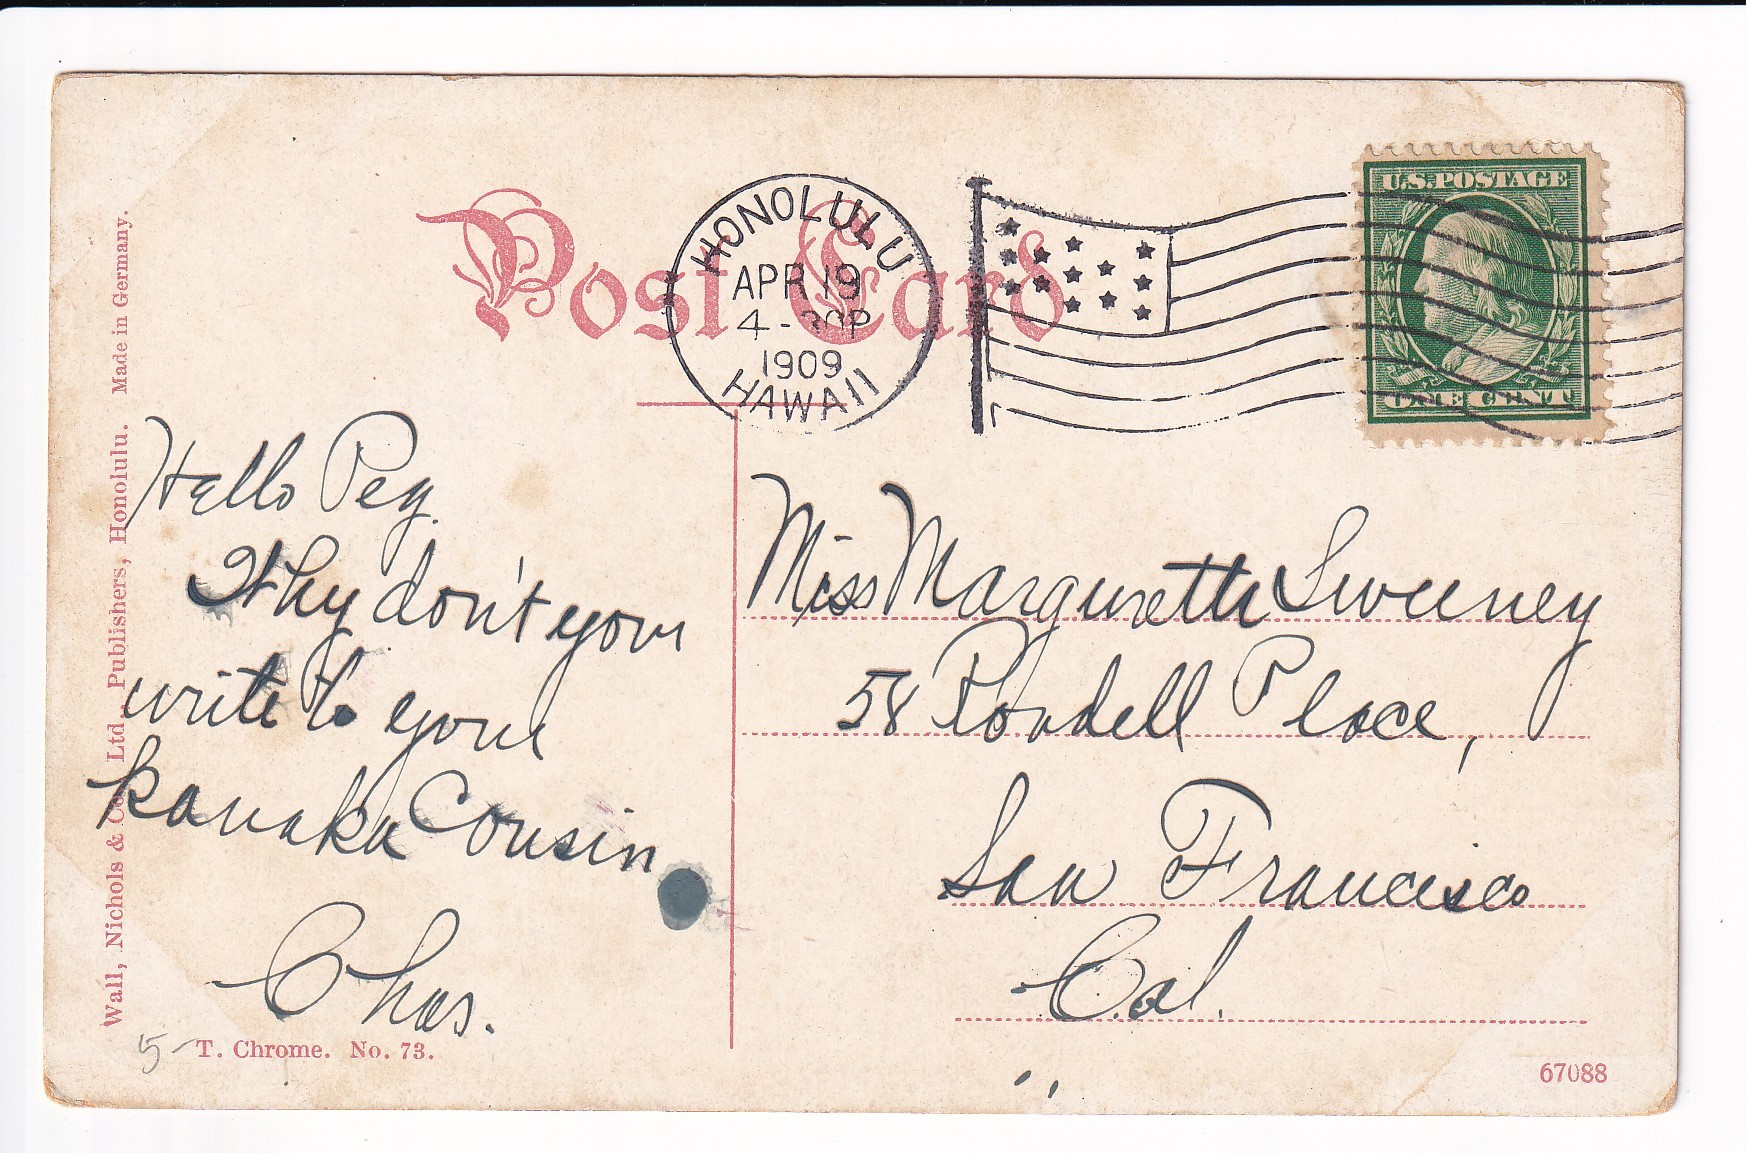 Post Card
HONOLULU
APR 19
4-30P
1909
HAWAII
U.S. POSTAGE
ONE CENT
Wall, Nichols & Co., Ltd., Publishers, Honolulu. Made in Germany.
Hello Peg.
Why don't you
write to your
Kanaka Cousin
Chas.
Miss Margurette Sweeney
58 Rondell Place,
San Francisco
Cal.
5-
T. Chrome. No. 73.
67088